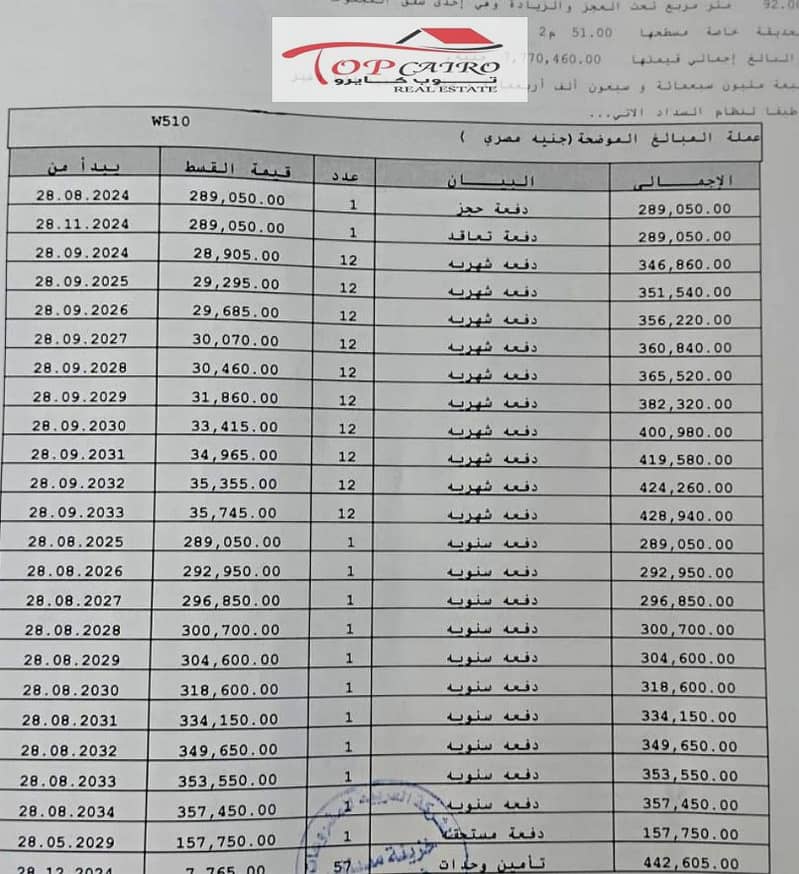 92.00 متر مربع تحت العجز والزيادة وفي إحدى
حديقة خاصة مسطحها 51.00 م2
المبالغ إجمالي قيمتها 7,770,460.00
TOP CAIRO
توب كايرو
REAL ESTATE
مليون سبعمائة و سبعون ألف
طبقا لنظام السداد الاتي...
W510
عملة المبالغ الموضحة (جنيه مصري )
الإجمالى البيان عدد قيمة القسط يبدأ من
289,050.00 دفعة حجز 1 289,050.00 28.08.2024
289,050.00 دفعة تعاقد 1 289,050.00 28.11.2024
346,860.00 دفعه شهريه 12 28,905.00 28.09.2024
351,540.00 دفعه شهريه 12 29,295.00 28.09.2025
356,220.00 دفعه شهريه 12 29,685.00 28.09.2026
360,840.00 دفعه شهريه 12 30,070.00 28.09.2027
365,520.00 دفعه شهريه 12 30,460.00 28.09.2028
382,320.00 دفعه شهريه 12 31,860.00 28.09.2029
400,980.00 دفعه شهريه 12 33,415.00 28.09.2030
419,580.00 دفعه شهريه 12 34,965.00 28.09.2031
424,260.00 دفعه شهريه 12 35,355.00 28.09.2032
428,940.00 دفعه شهريه 12 35,745.00 28.09.2033
289,050.00 دفعه سنويه 1 289,050.00 28.08.2025
292,950.00 دفعه سنويه 1 292,950.00 28.08.2026
296,850.00 دفعه سنويه 1 296,850.00 28.08.2027
300,700.00 دفعه سنويه 1 300,700.00 28.08.2028
304,600.00 دفعه سنويه 1 304,600.00 28.08.2029
318,600.00 دفعه سنويه 1 318,600.00 28.08.2030
334,150.00 دفعه سنويه 1 334,150.00 28.08.2031
349,650.00 دفعه سنويه 1 349,650.00 28.08.2032
353,550.00 دفعه سنويه 1 353,550.00 28.08.2033
357,450.00 دفعه سنويه 1 357,450.00 28.08.2034
157,750.00 دفعة مستحقة 1 157,750.00 28.05.2029
442,605.00 تأمين وحدات 57 7,765.00 28.12.2024